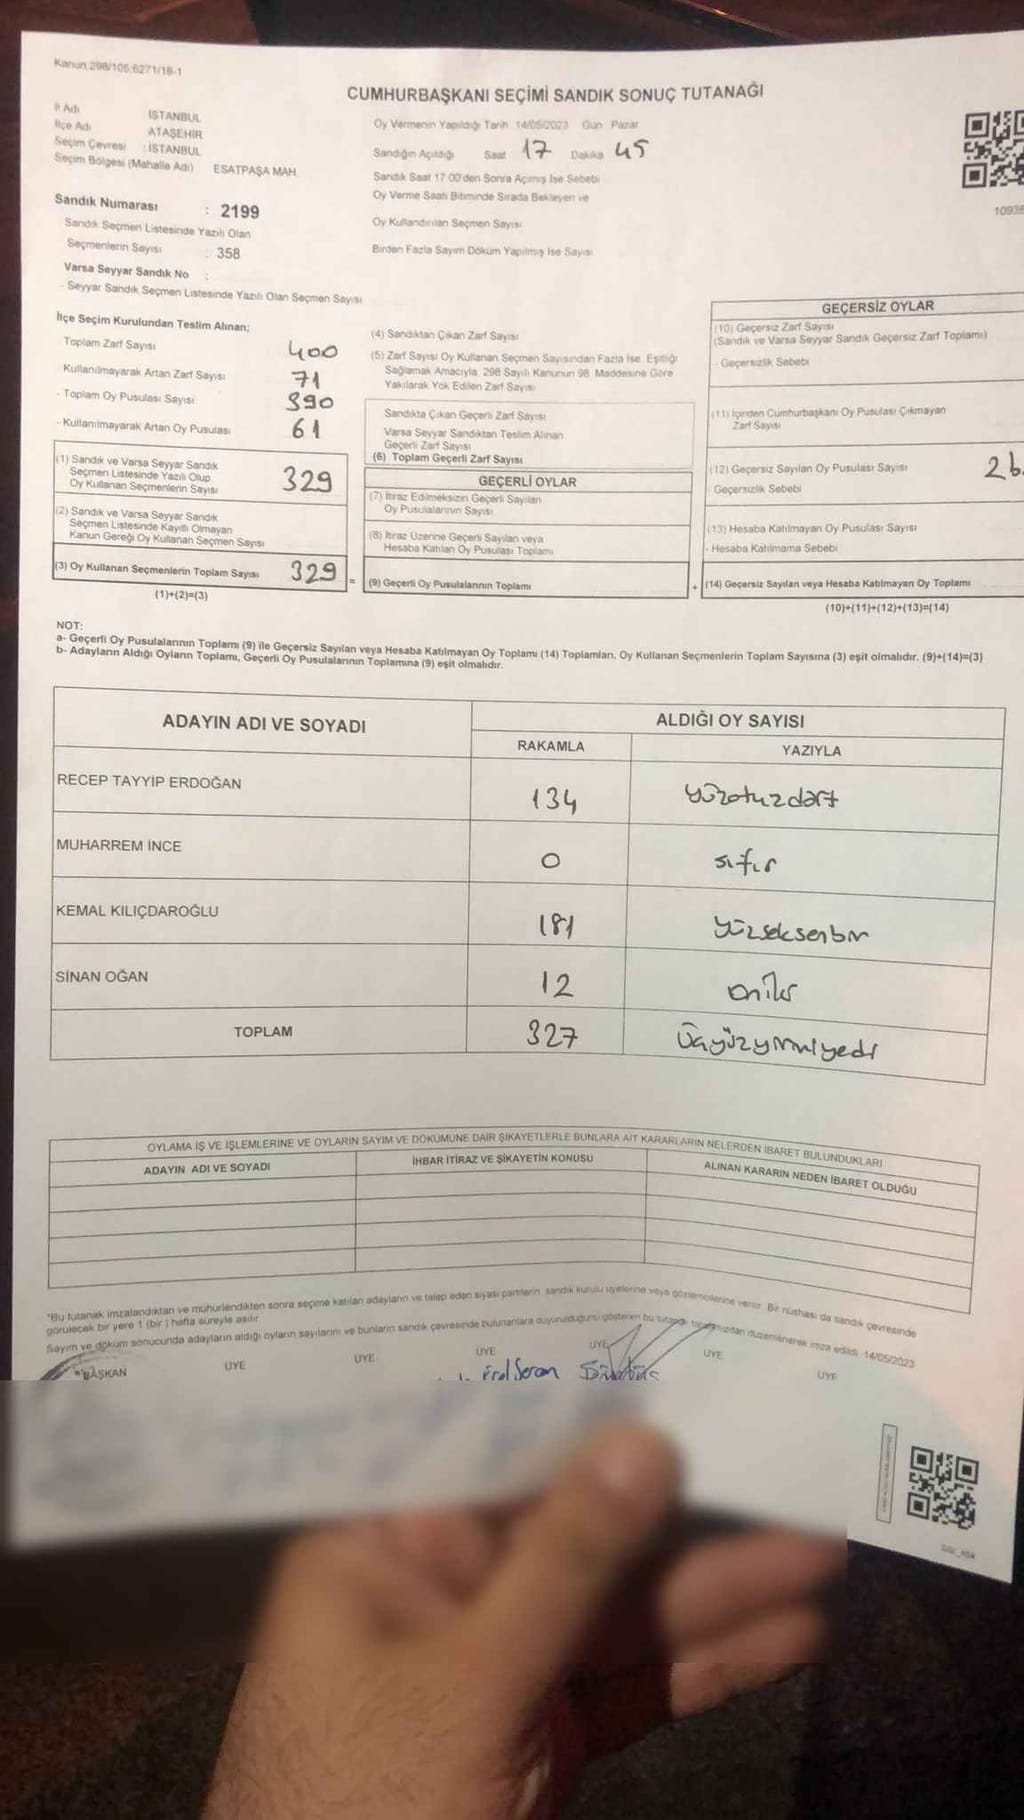 Kanun:298/105;6271/18-1
CUMHURBAŞKANI SEÇİMİ SANDIK SONUÇ TUTANAĞI
İl Adı İSTANBUL
İlçe Adı ATAŞEHİR
Seçim Çevresi : İSTANBUL
Seçim Bölgesi (Mahalle Adı) ESATPAŞA MAH
Sandık Numarası : 2199
Sandık Seçmen Listesinde Yazılı Olan
Seçmenlerin Sayısı : 358
Varsa Seyyar Sandık No :
- Seyyar Sandık Seçmen Listesinde Yazılı Olan Seçmen Sayısı
Oy Vermenin Yapıldığı Tarih 14/05/2023 Gün Pazar
Sandığın Açıldığı Saat 17 Dakika 45
Sandık Saat 17:00'den Sonra Açımış İse Sebebi
Oy Verme Saati Bitiminde Sırada Bekleyen ve
Oy Kullandırılan Seçmen Sayısı
Birden Fazla Sayım Döküm Yapılmış İse Sayısı
10936
İlçe Seçim Kurulundan Teslim Alınan;
- Toplam Zarf Sayısı 400
- Kullanılmayarak Artan Zarf Sayısı 71
- Toplam Oy Pusulası Sayısı 390
- Kullanılmayarak Artan Oy Pusulası 61
(1) Sandık ve Varsa Seyyar Sandık
Seçmen Listesinde Yazılı Olup
Oy Kullanan Seçmenlerin Sayısı 329
(2) Sandık ve Varsa Seyyar Sandık
Seçmen Listesinde Kayıtlı Olmayan
Kanun Gereği Oy Kullanan Seçmen Sayısı
(3) Oy Kullanan Seçmenlerin Toplam Sayısı 329
(1)+(2)=(3)
(4) Sandıktan Çıkan Zarf Sayısı
(5) Zarf Sayısı Oy Kullanan Seçmen Sayısından Fazla İse, Eşitliği
Sağlamak Amacıyla, 298 Sayılı Kanunun 98. Maddesine Göre
Yakılarak Yok Edilen Zarf Sayısı
Sandıkta Çıkan Geçerli Zarf Sayısı
Varsa Seyyar Sandıktan Teslim Alınan
Geçerli Zarf Sayısı
(6) Toplam Geçerli Zarf Sayısı
GEÇERLİ OYLAR
(7) İtiraz Edilmeksizin Geçerli Sayılan
Oy Pusulalarının Sayısı
(8) İtiraz Üzerine Geçerli Sayılan veya
Hesaba Katılan Oy Pusulası Toplamı
= (9) Geçerli Oy Pusulalarının Toplamı +
GEÇERSİZ OYLAR
(10) Geçersiz Zarf Sayısı
(Sandık ve Varsa Seyyar Sandık Geçersiz Zarf Toplamı)
- Geçersizlik Sebebi
(11) İçinden Cumhurbaşkanı Oy Pusulası Çıkmayan
Zarf Sayısı
(12) Geçersiz Sayılan Oy Pusulası Sayısı 2
- Geçersizlik Sebebi
(13) Hesaba Katılmayan Oy Pusulası Sayısı
- Hesaba Katılmama Sebebi
(14) Geçersiz Sayılan veya Hesaba Katılmayan Oy Toplamı
(10)+(11)+(12)+(13)=(14)
NOT:
a- Geçerli Oy Pusulalarının Toplamı (9) ile Geçersiz Sayılan veya Hesaba Katılmayan Oy Toplamı (14) Toplamları, Oy Kullanan Seçmenlerin Toplam Sayısına (3) eşit olmalıdır. (9)+(14)=(3)
b- Adayların Aldığı Oyların Toplamı, Geçerli Oy Pusulalarının Toplamına (9) eşit olmalıdır.
ADAYIN ADI VE SOYADI ALDIĞI OY SAYISI
RAKAMLA YAZIYLA
RECEP TAYYİP ERDOĞAN 134 yüzotuzdört
MUHARREM İNCE 0 sıfır
KEMAL KILIÇDAROĞLU 181 yüzseksenbir
SİNAN OĞAN 12 oniki
TOPLAM 327 üçyüzyirmiyedi
OYLAMA İŞ VE İŞLEMLERİNE VE OYLARIN SAYIM VE DÖKÜMÜNE DAİR ŞİKAYETLERLE BUNLARA AİT KARARLARIN NELERDEN İBARET BULUNDUKLARI
ADAYIN ADI VE SOYADI İHBAR İTİRAZ VE ŞİKAYETİN KONUSU ALINAN KARARIN NEDEN İBARET OLDUĞU
*Bu tutanak imzalandıktan ve mühürlendikten sonra seçime katılan adayların ve talep eden siyasi partilerin, sandık kurulu üyelerine veya gözlemcilerine verilir. Bir nüshası da sandık çevresinde
görülecek bir yere 1 (bir) hafta süreyle asılır.
Sayım ve döküm sonucunda adayların aldığı oyların sayılarını ve bunların sandık çevresinde bulunanlara duyurulduğunu gösteren bu tutanak tarafımızdan düzenlenerek imza edildi. 14/05/2023
BAŞKAN ÜYE ÜYE ÜYE ÜYE ÜYE ÜYE